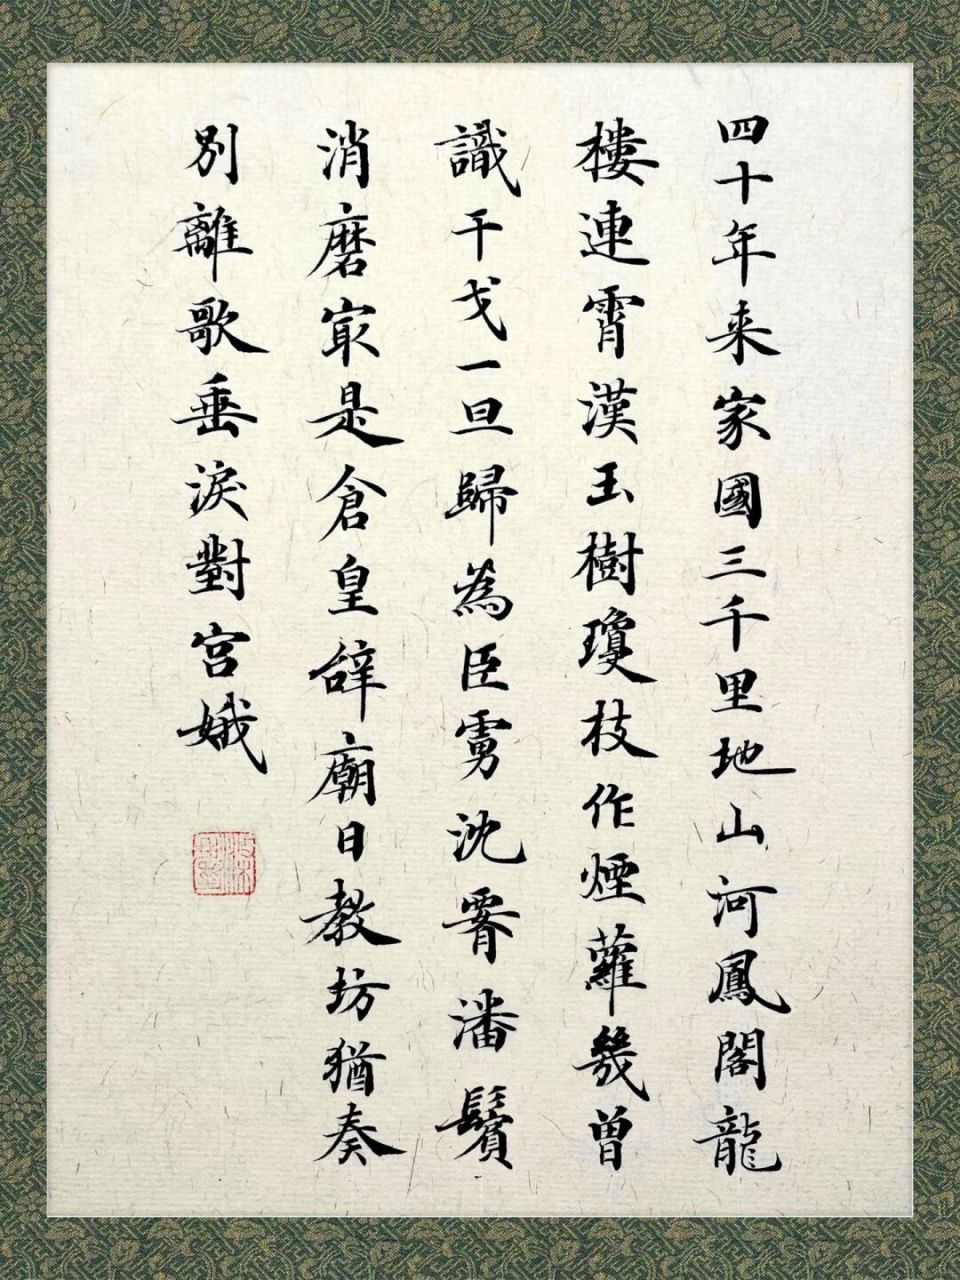 四十年来家國三千里地山河鳳閣龍
樓連霄漢玉樹瓊枝作煙蘿幾曾
識干戈一旦歸為臣虜沈腰潘鬢
消磨冣是倉皇辭廟日教坊猶奏
別離歌垂淚對宮娥